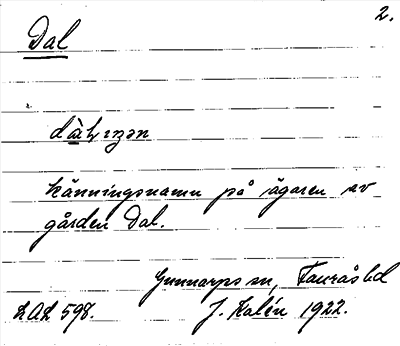 2.
Dal
känningsnamn på ägaren av
gården Dal.
Gunnarps sn, Faurås hd
LAL 598. J. Kalén 1922.